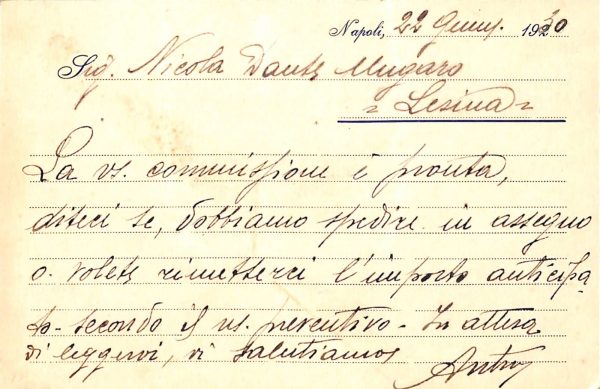 Napoli, 22 Giug. 1930
Sig. Nicola Dante Mugaro
= Lesina =
La vs. commissione è pronta,
diteci se, dobbiamo spedire in assegno
o volete rimetterci l'importo anticipa
to secondo il vs. preventivo - In attesa
di leggervi, vi salutiamo